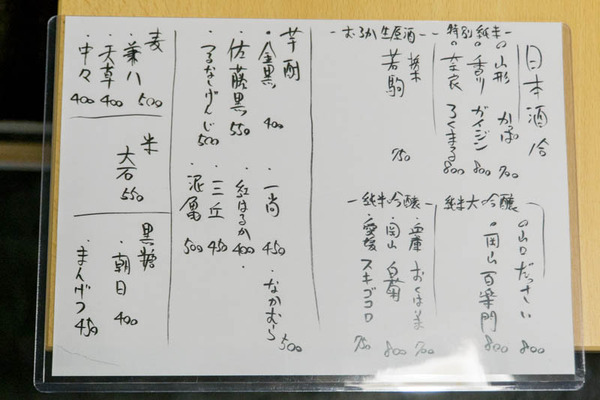 日本酒 冷
特別純米
の山形 かば 700
の香川 ガイジン 800
ろくまる 800
おるか生原酒
栃木 若駒 750
純米大吟醸
の山口 だっさい 800
の岡山 百楽門 800
純米吟醸
・兵庫 おくはりま 700
・岡山 白菊 800
・愛媛 スキゴコロ 750
芋酎
・金黒 400
・佐藤黒 550
・つるなしげんじ 500
・一尚 450
・なかむら 500
・紅はるか 400
・三丘 450
・泥亀 500
麦
・兼八 500
・天草 400
・中々 400
米
大石 550
黒糖
・朝日 400
・まんげつ 450